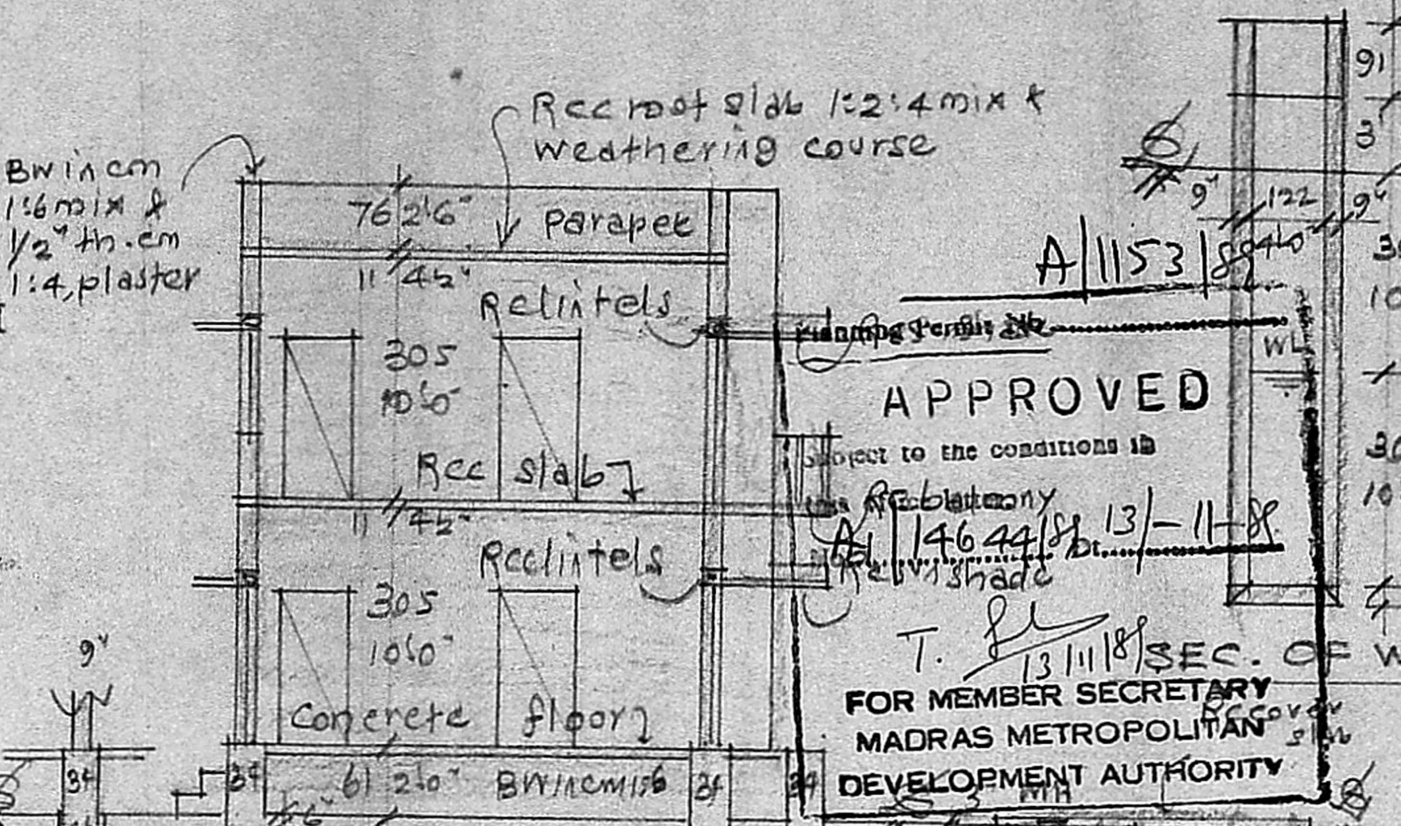 RCC roof slab 1:2:4 mix &
weathering course
BW in cm
1:6 mix &
1/2" th. cm
1:4, plaster
76 2'6" Parapet
11 4½"
RC lintels
305
10'0"
RCC slab
11 4½"
RCC lintels
305
10'0"
Concrete floor
9"
61 2'0" BW in cm 1:6
A/1153/89
Planning Permit No
APPROVED
Subject to the conditions in
14644/8 Dt. 13/-11-8
T.
13/11/8
FOR MEMBER SECRETARY
MADRAS METROPOLITAN
DEVELOPMENT AUTHORITY
91
3
9" 122 9"
WL
SEC. OF W